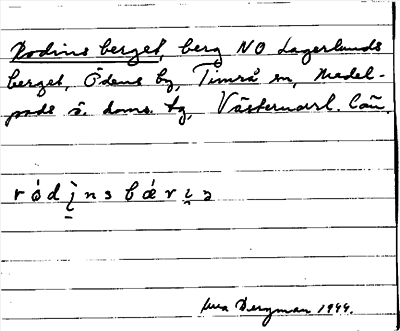 Rodins berget, berg NO Lagerlunds
berget, Ödens by, Timrå sn, Medel-
pads ö. doms. tg, Västernorrl. län.
r ó d i n s b æ r ɩ ə
Bergman 1944.